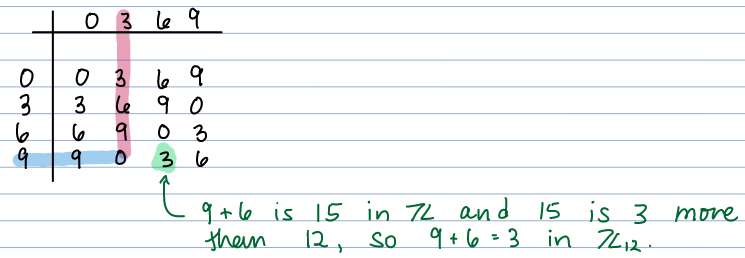 0 3 6 9
0 0 3 6 9
3 3 6 9 0
6 6 9 0 3
9 9 0 3 6
9+6 is 15 in ℤ and 15 is 3 more
than 12, so 9+6=3 in ℤ₁₂.